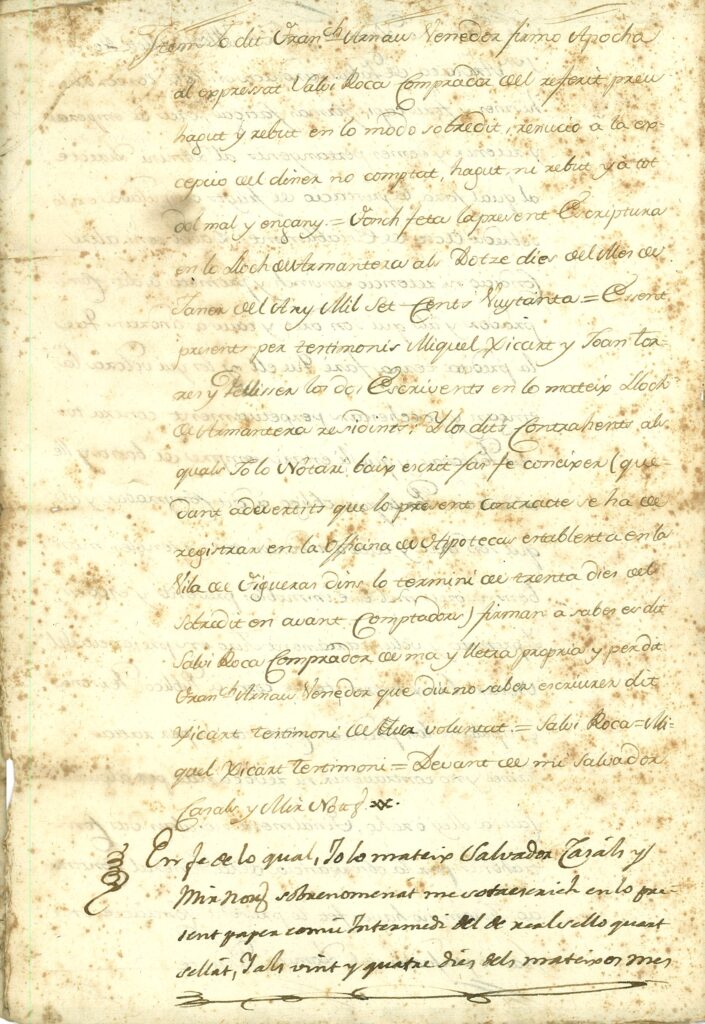 Item Jo dit Franch Arnau Venedor firmo Apocha
al expressat Salvi Roca Comprador del referit preu
hagut y rebut en lo modo sobredit, renucio á la ex-
cepcio del diner no comptat, hagut, ni rebut y à tot
dol mal y engany. = Fonch feta la present Escriptura
en lo Lloch de Armantera als Dotze dies del Mes de
Janer del Any Mil Set Cents Vuytanta = Essent
presents per Testimonis Miquel Xicart y Joan Tor-
rer y Pellisser los dos Escrivents en lo mateix Lloch
de Armantera residints; Y los dits Contrahents, als
quals Jo lo Notari baix escrit fas fe coneixer (que-
dant adevertits que lo present contracte se ha de
registrar en la Officina de Hipotecas establerta en la
Vila de Figueras dins lo termini de trenta dies del
sobredit en avant Comptadors) firman a saber es dit
Salvi Roca Comprador de ma y lletra propria y per dit
Franch Arnau Venedor que diu no saber escriurer dit
Xicart Testimoni de sa voluntat. = Salvi Roca = Mi-
quel Xicart Testimoni = Devant de mi Salvador
Casals y Mir Nott.
En fe de lo qual, Jo lo mateix Salvador Casáls y
Mir Nott sobrenomenat me sotrescrich en lo pre-
sent paper comú Intermedi del de real sello quart
sellát, Als vint y quatre dies dels mateixos mes